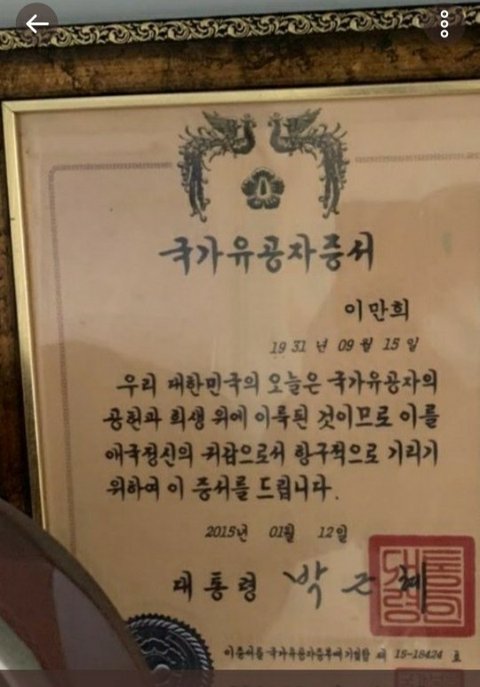 국가유공자증서
이만희
1931년 09월 15일
우리 대한민국의 오늘은 국가유공자의
공헌과 희생 위에 이룩된 것이므로 이를
애국정신의 귀감으로서 항구적으로 기리기
위하여 이 증서를 드립니다.
2015년 01월 12일
대통령 박근혜
이 증서를 국가유공자증부에 기입함 제 15-18424 호